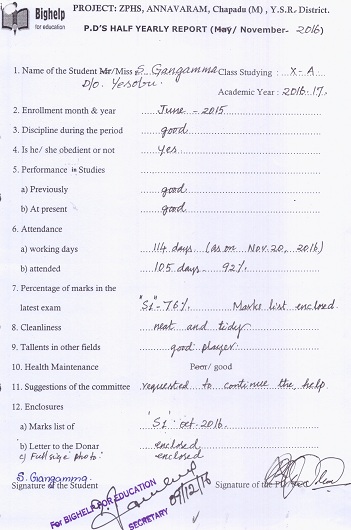 Bighelp
for education
PROJECT: ZPHS, ANNAVARAM, Chapadu (M), Y.S.R. District.
P.D'S HALF YEARLY REPORT (May/ November- 2016)
1. Name of the Student Mr/Miss S. Gangamma Class Studying : X-A
D/o. Yesobu. Academic Year : 2016-17.
2. Enrollment month & year June - 2015
3. Discipline during the period good
4. Is he/ she obedient or not yes
5. Performance in Studies
a) Previously good
b) At present good
6. Attendance
a) working days 114 days (as on Nov. 20, 2016)
b) attended 105 days - 92%
7. Percentage of marks in the
latest exam "S1" - 76% Marks list enclosed.
8. Cleanliness neat and tidy
9. Tallents in other fields good player
10. Health Maintenance Poor/ good
11. Suggestions of the committee requested to continue the help.
12. Enclosures
a) Marks list of "S1" - Oct-2016.
b) Letter to the Donar enclosed
c) Full size photo: enclosed
S. Gangamma
Signature of the Student Signature of the
For BIGHELP FOR EDUCATION
09/12/16
SECRETARY